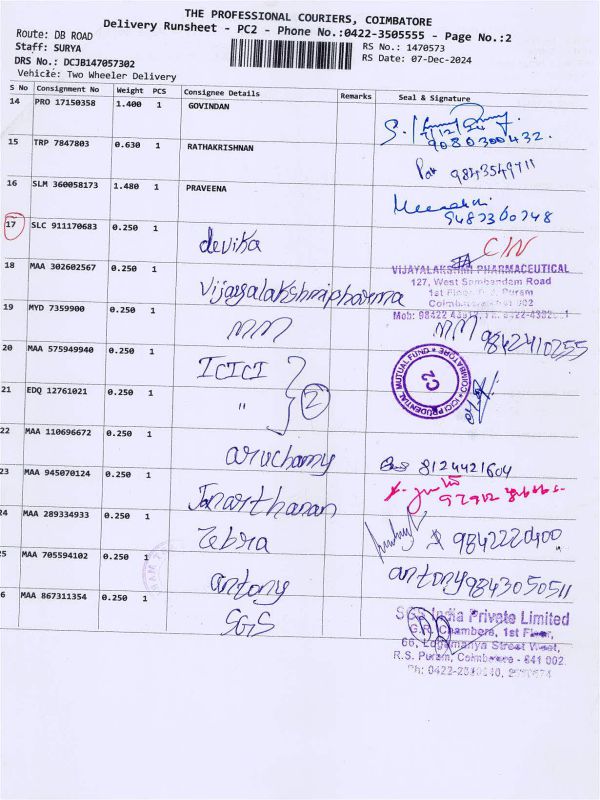 THE PROFESSIONAL COURIERS, COIMBATORE
Delivery Runsheet - PC2 - Phone No.:0422-3505555 - Page No.:2
Route: DB ROAD
RS No.: 1470573
Staff: SURYA
RS Date: 07-Dec-2024
DRS No.: DCJB147057302
Vehicle: Two Wheeler Delivery
S No Consignment No Weight PCS Consignee Details Remarks Seal & Signature
14 PRO 17150358 1.400 1 GOVINDAN
7/12/24
9080300432.
15 TRP 7847803 0.630 1 RATHAKRISHNAN
9843549711
16 SLM 360058173 1.480 1 PRAVEENA
9487300748
17 SLC 911170683 0.250 1 devika C/N
18 MAA 302602567 0.250 1 Vijayalakshmipharma
VIJAYALAKSHMI PHARMACEUTICAL
127, West Sambandam Road
1st Floor, R.S. Puram
19 MYD 7359900 0.250 1 MM MM 9842410255
20 MAA 575949940 0.250 1 ICICI
ICICI PRUDENTIAL MUTUAL FUND * COIMBATORE *
C2
21 EDQ 12761021 0.250 1 " 2
22 MAA 110696672 0.250 1 aruchamy 8124421604
23 MAA 945070124 0.250 1 Janarthanan
24 MAA 289334933 0.250 1 Zebra 9842220400
25 MAA 705594102 0.250 1 antony antony 9843050511
6 MAA 867311354 0.250 1 SGS
SGS India Private Limited
G.R. Chambers, 1st Floor,
66, Logamanya Street West,
R.S. Puram, Coimbatore - 641 002.